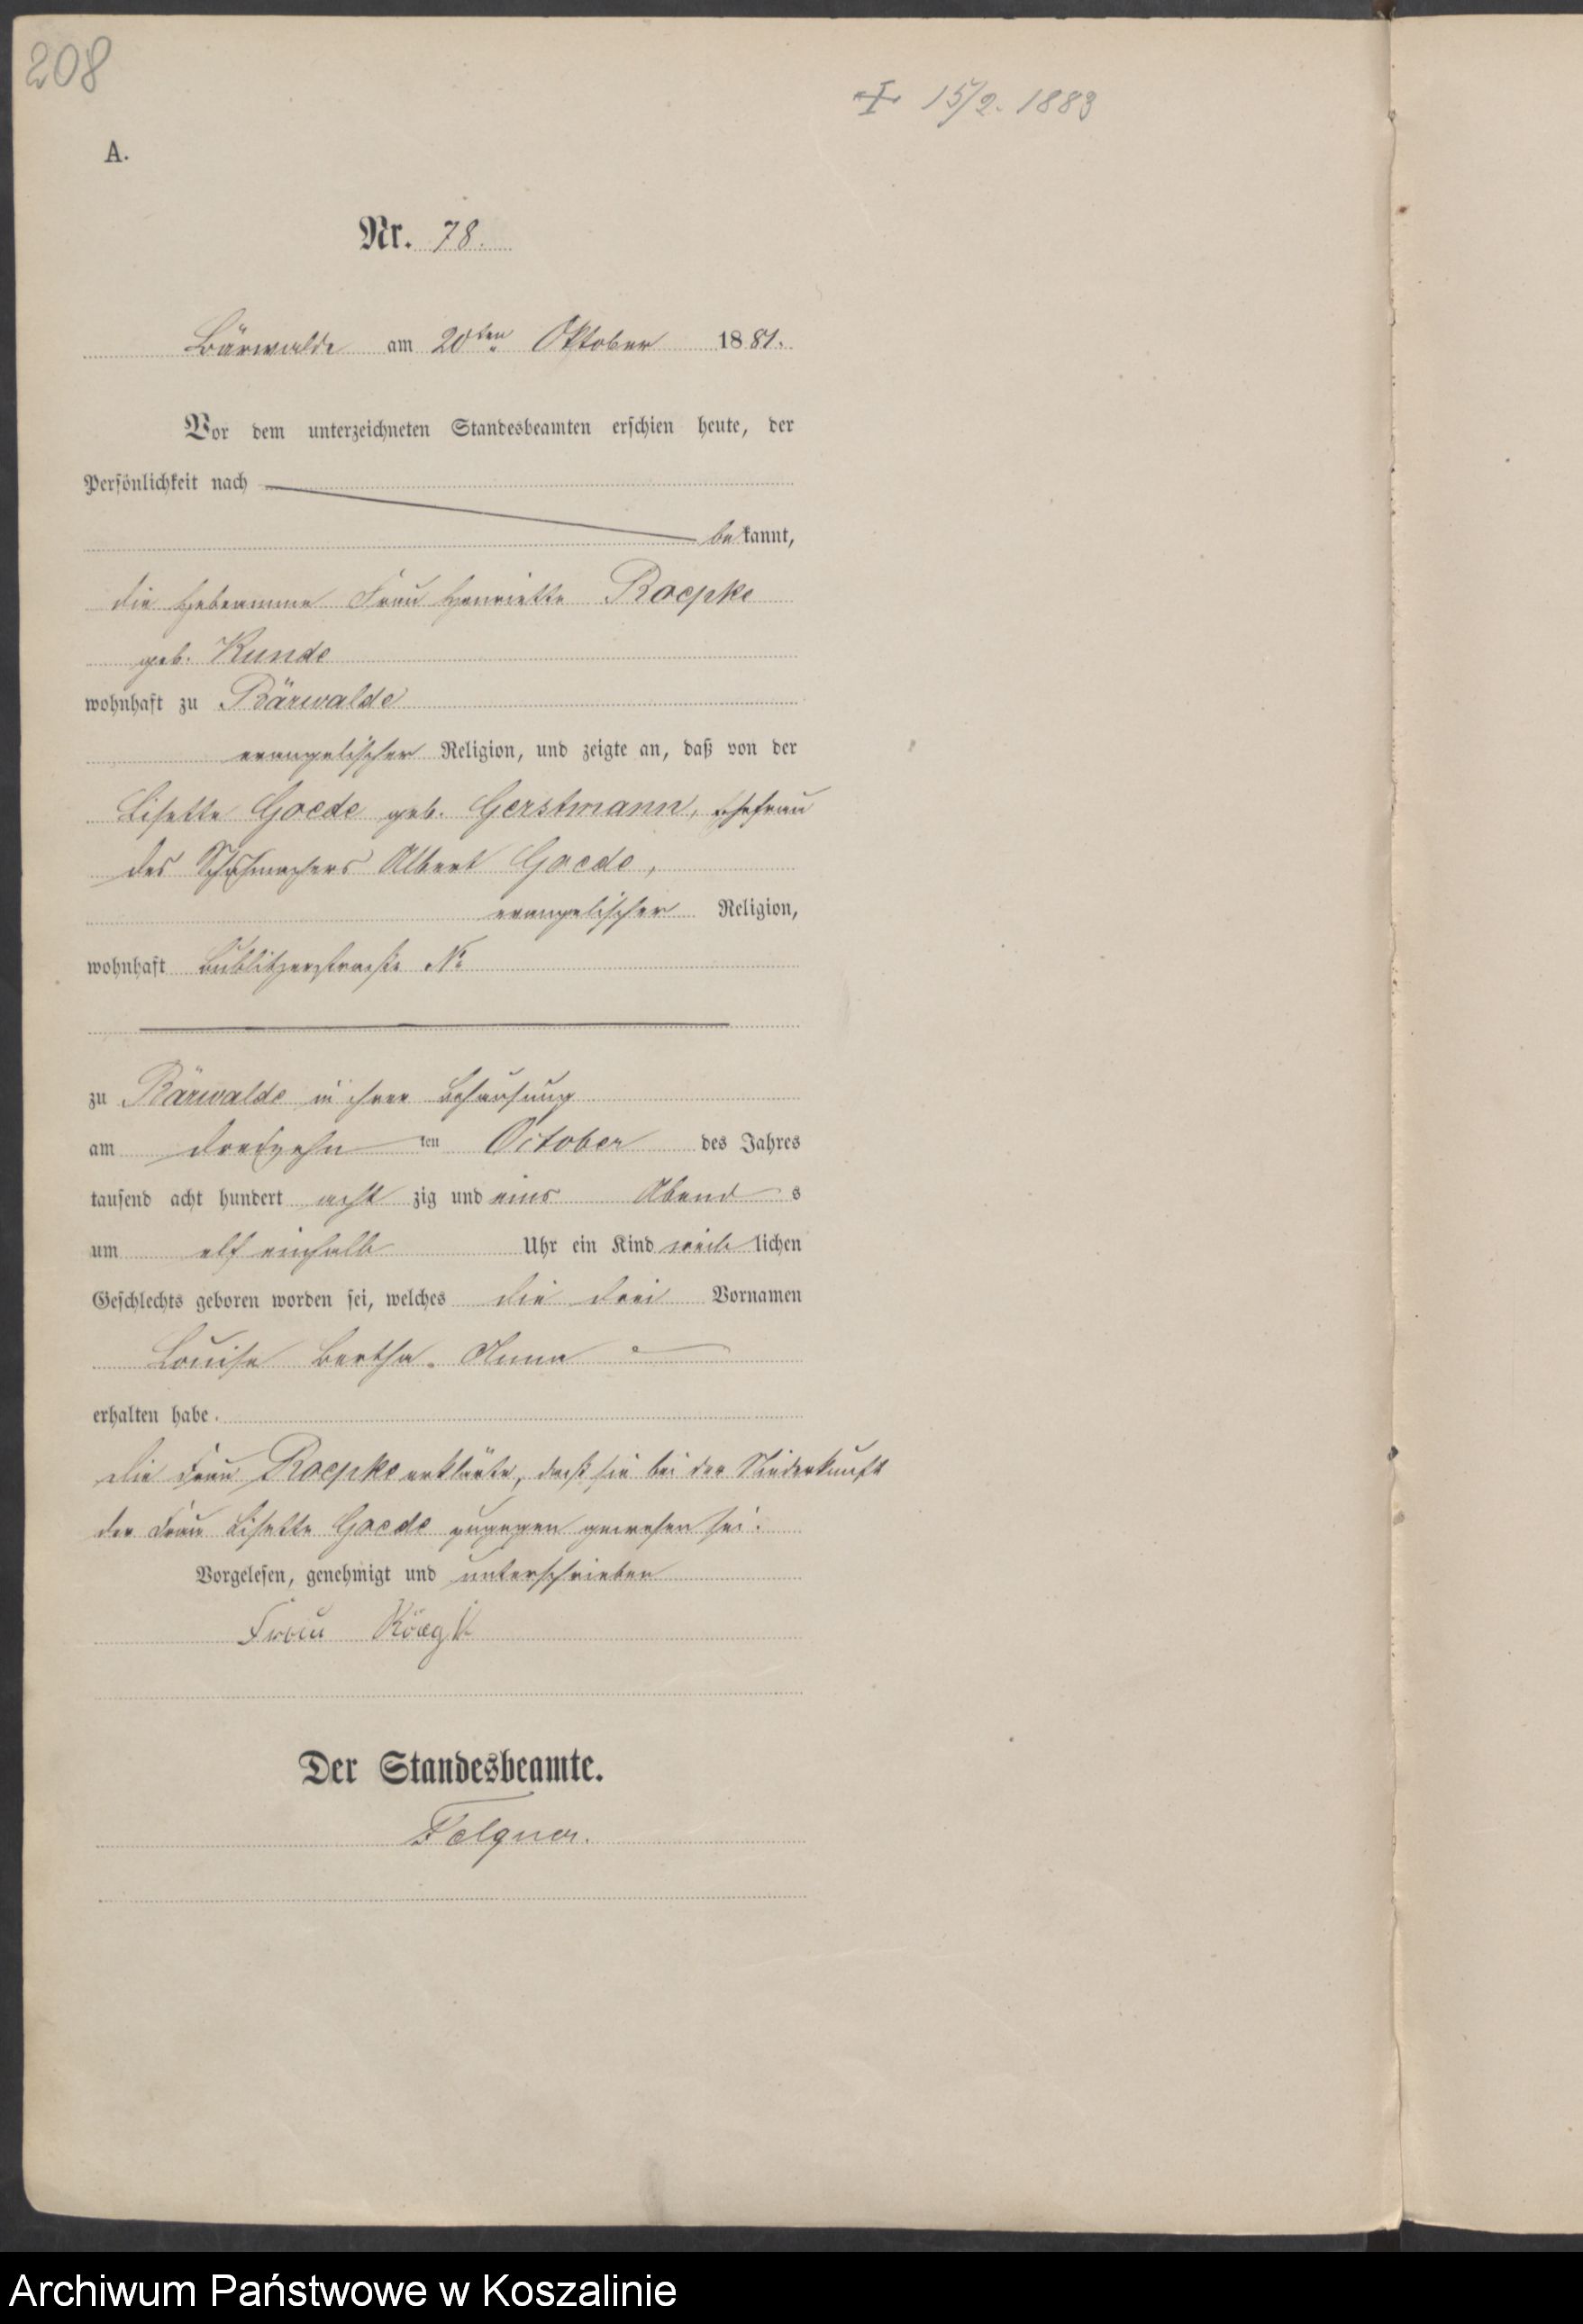 208
15/2. 1883
A.
Nr. 78.
Bärwalde am 20ten Oktober 1881.
Vor dem unterzeichneten Standesbeamten erschien heute, der
Persönlichkeit nach
bekannt,
die Hebeamme Frau Henriette Roepke
geb. Kunde
wohnhaft zu Bärwalde
evangelischer Religion, und zeigte an, daß von der
Lisette Goede geb. Gerstmann, Ehefrau
des Schuhmachers Albert Goede,
evangelischer Religion,
wohnhaft Bublitzerstraße No
zu Bärwalde in ihrer Behausung
am dreizehn ten October des Jahres
tausend acht hundert acht zig und eins Abend s
um elf einhalb Uhr ein Kind weib lichen
Geschlechts geboren worden sei, welches die drei Vornamen
Louise Bertha Anna
erhalten habe.
Die Frau Roepke erklärte, daß sie bei der Niederkunft
der Frau Lisette Goede zugegen gewesen sei.
Vorgelesen, genehmigt und unterschrieben
Frau
Der Standesbeamte.
Archiwum Państwowe w Koszalinie